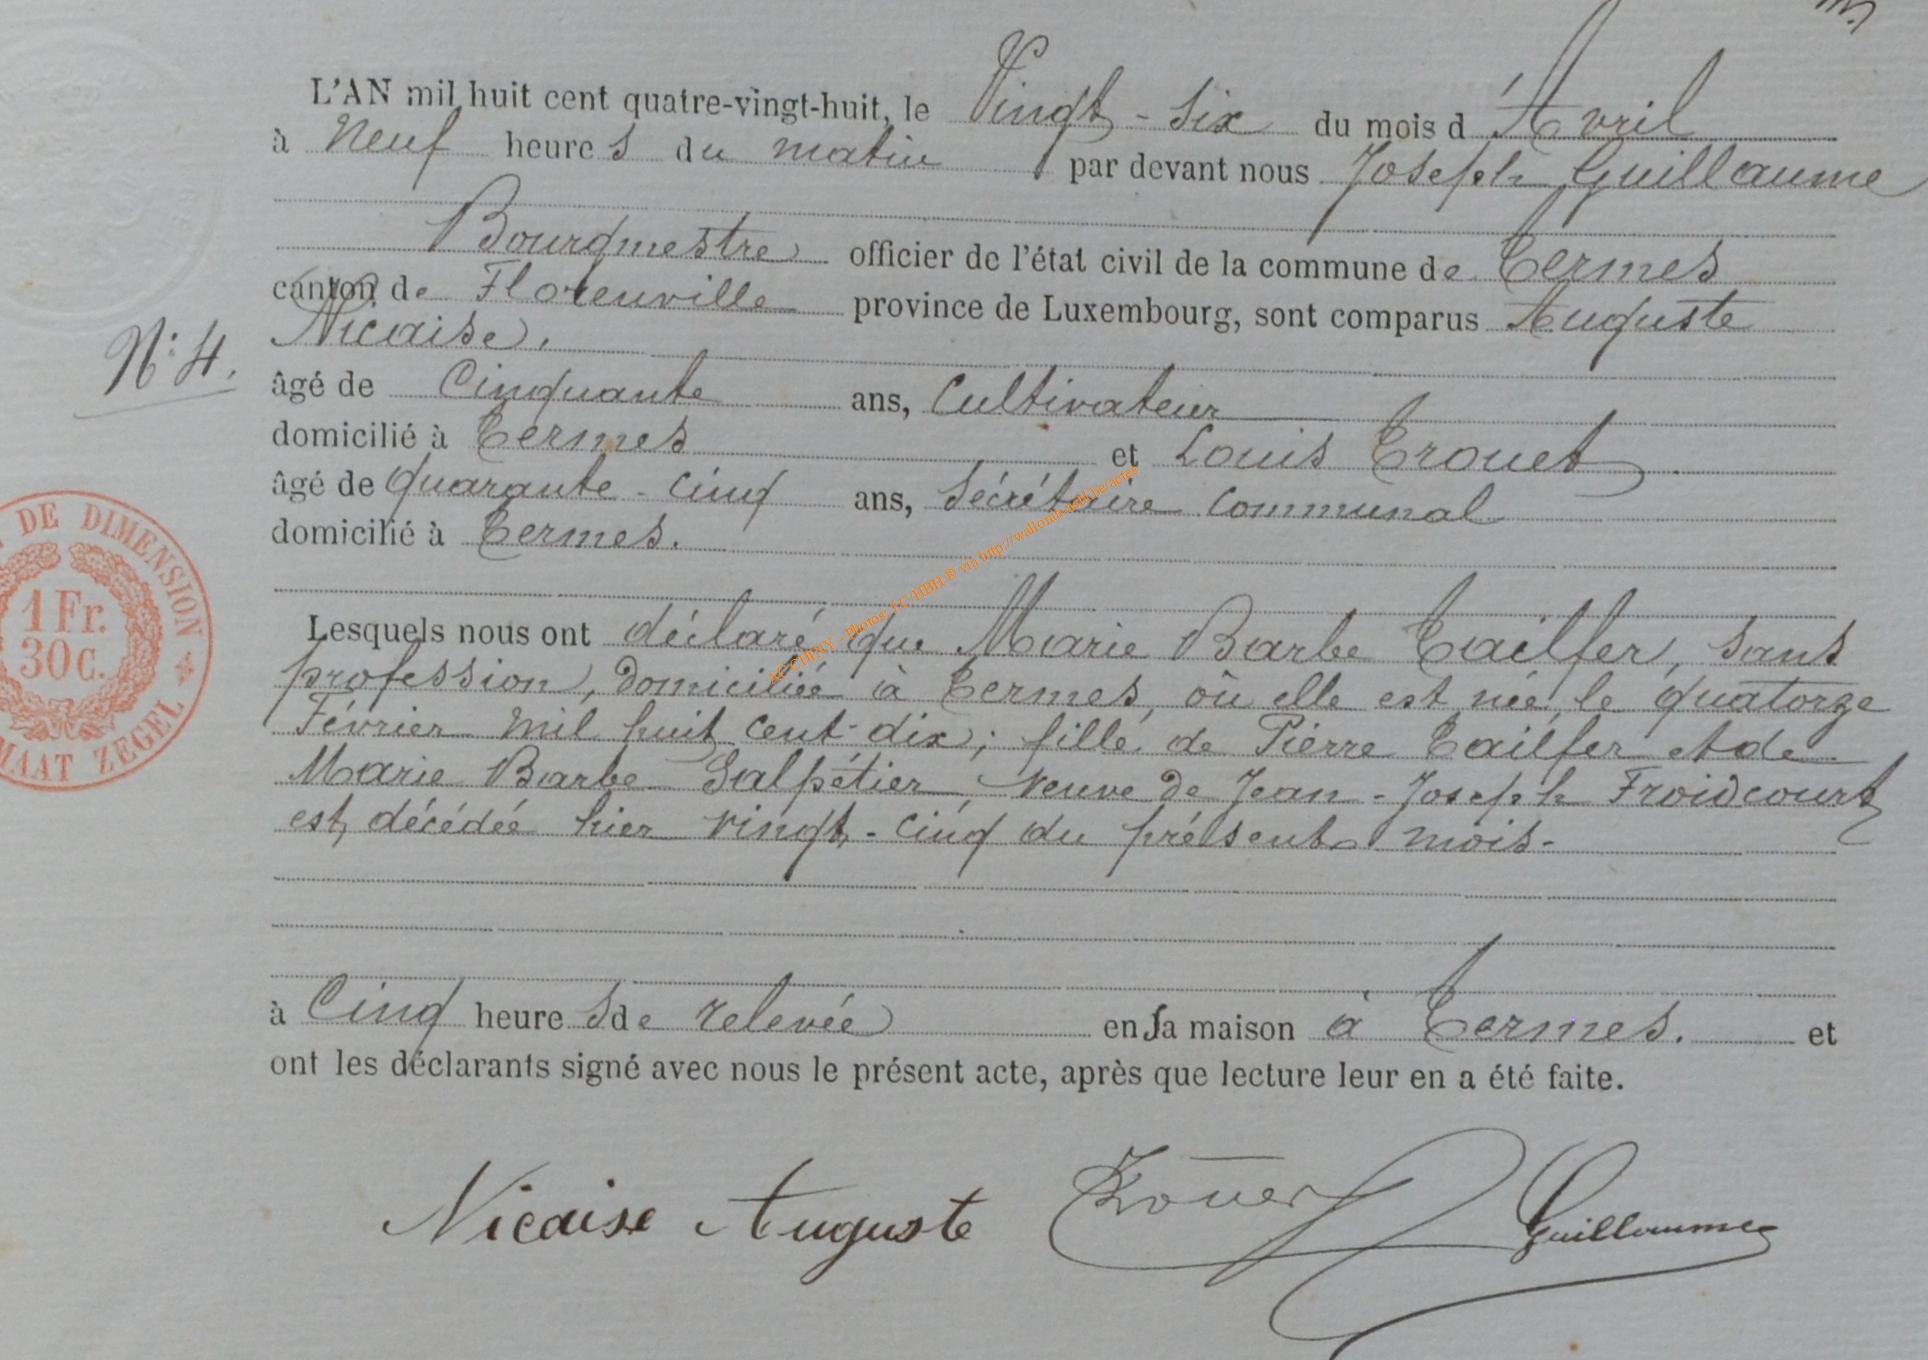 L'AN mil huit cent quatre-vingt-huit, le Vingt-six du mois d'Avril
à Neuf heures du matin par devant nous Joseph Guillaume
Bourgmestre officier de l'état civil de la commune de Termes
canton de Florenville province de Luxembourg, sont comparus Auguste
Nicaise.
N° 4.
âgé de Cinquante ans, Cultivateur
domicilié à Termes et Louis Trouet
âgé de quarante-cinq ans, Sécrétaire communal
domicilié à Termes.
Lesquels nous ont déclaré que Marie Barbe Tailfer, sans
profession, domiciliée à Termes, où elle est née, le quatorze
Février mil huit cent-dix; fille de Pierre Tailfer et de
Marie Barbe Salpétier, veuve de Jean-Joseph Froidcourt
est décédée hier vingt-cinq du présent mois-
à Cinq heures de relevée en sa maison à Termes. et
ont les déclarants signé avec nous le présent acte, après que lecture leur en a été faite.
Nicaise Auguste Trouet Guillaume
DE DIMENSION
1 Fr.
30 C.
MAAT ZEGEL
via http://wallonie.